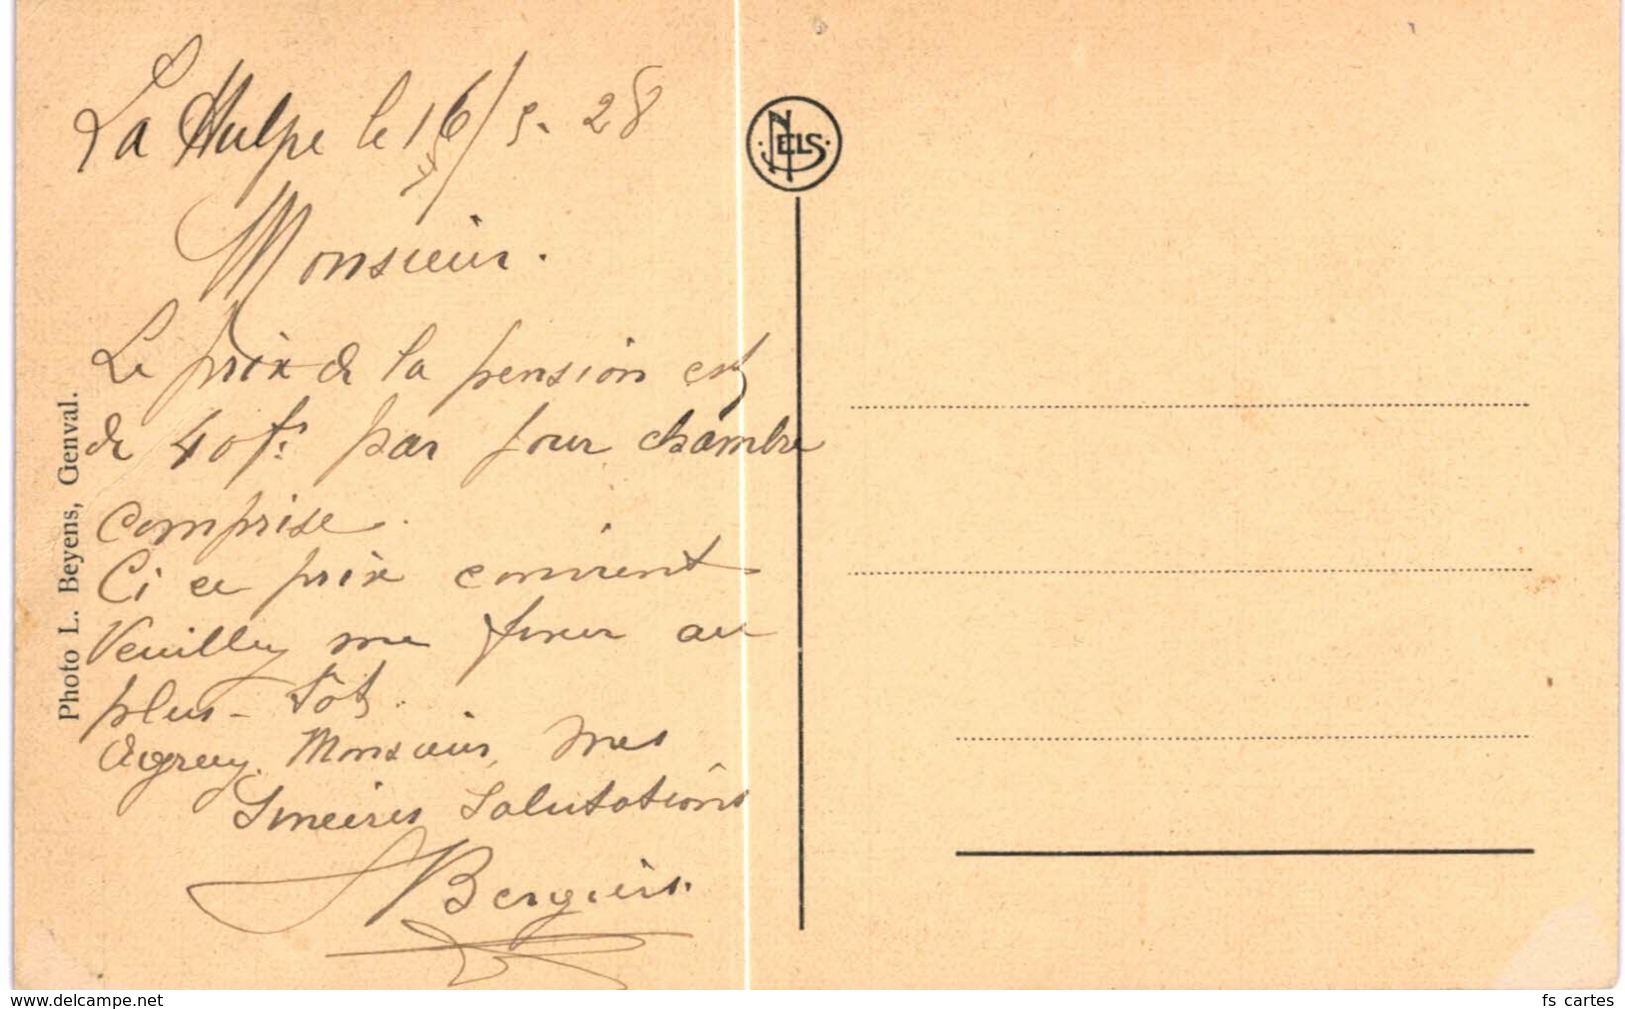 La Hulpe le 16/5. 28
Monsieur.
Le prix de la pension est
de 40 fr par jour chambre
comprise.
Ci ce prix convient
Veuillez me fixer au
plus-tôt.
Agreez, Monsieur, mes
Sinceires Salutations
Bergiers.
Photo L. Beyens, Genval.
NELS
www.delcampe.net
fs cartes